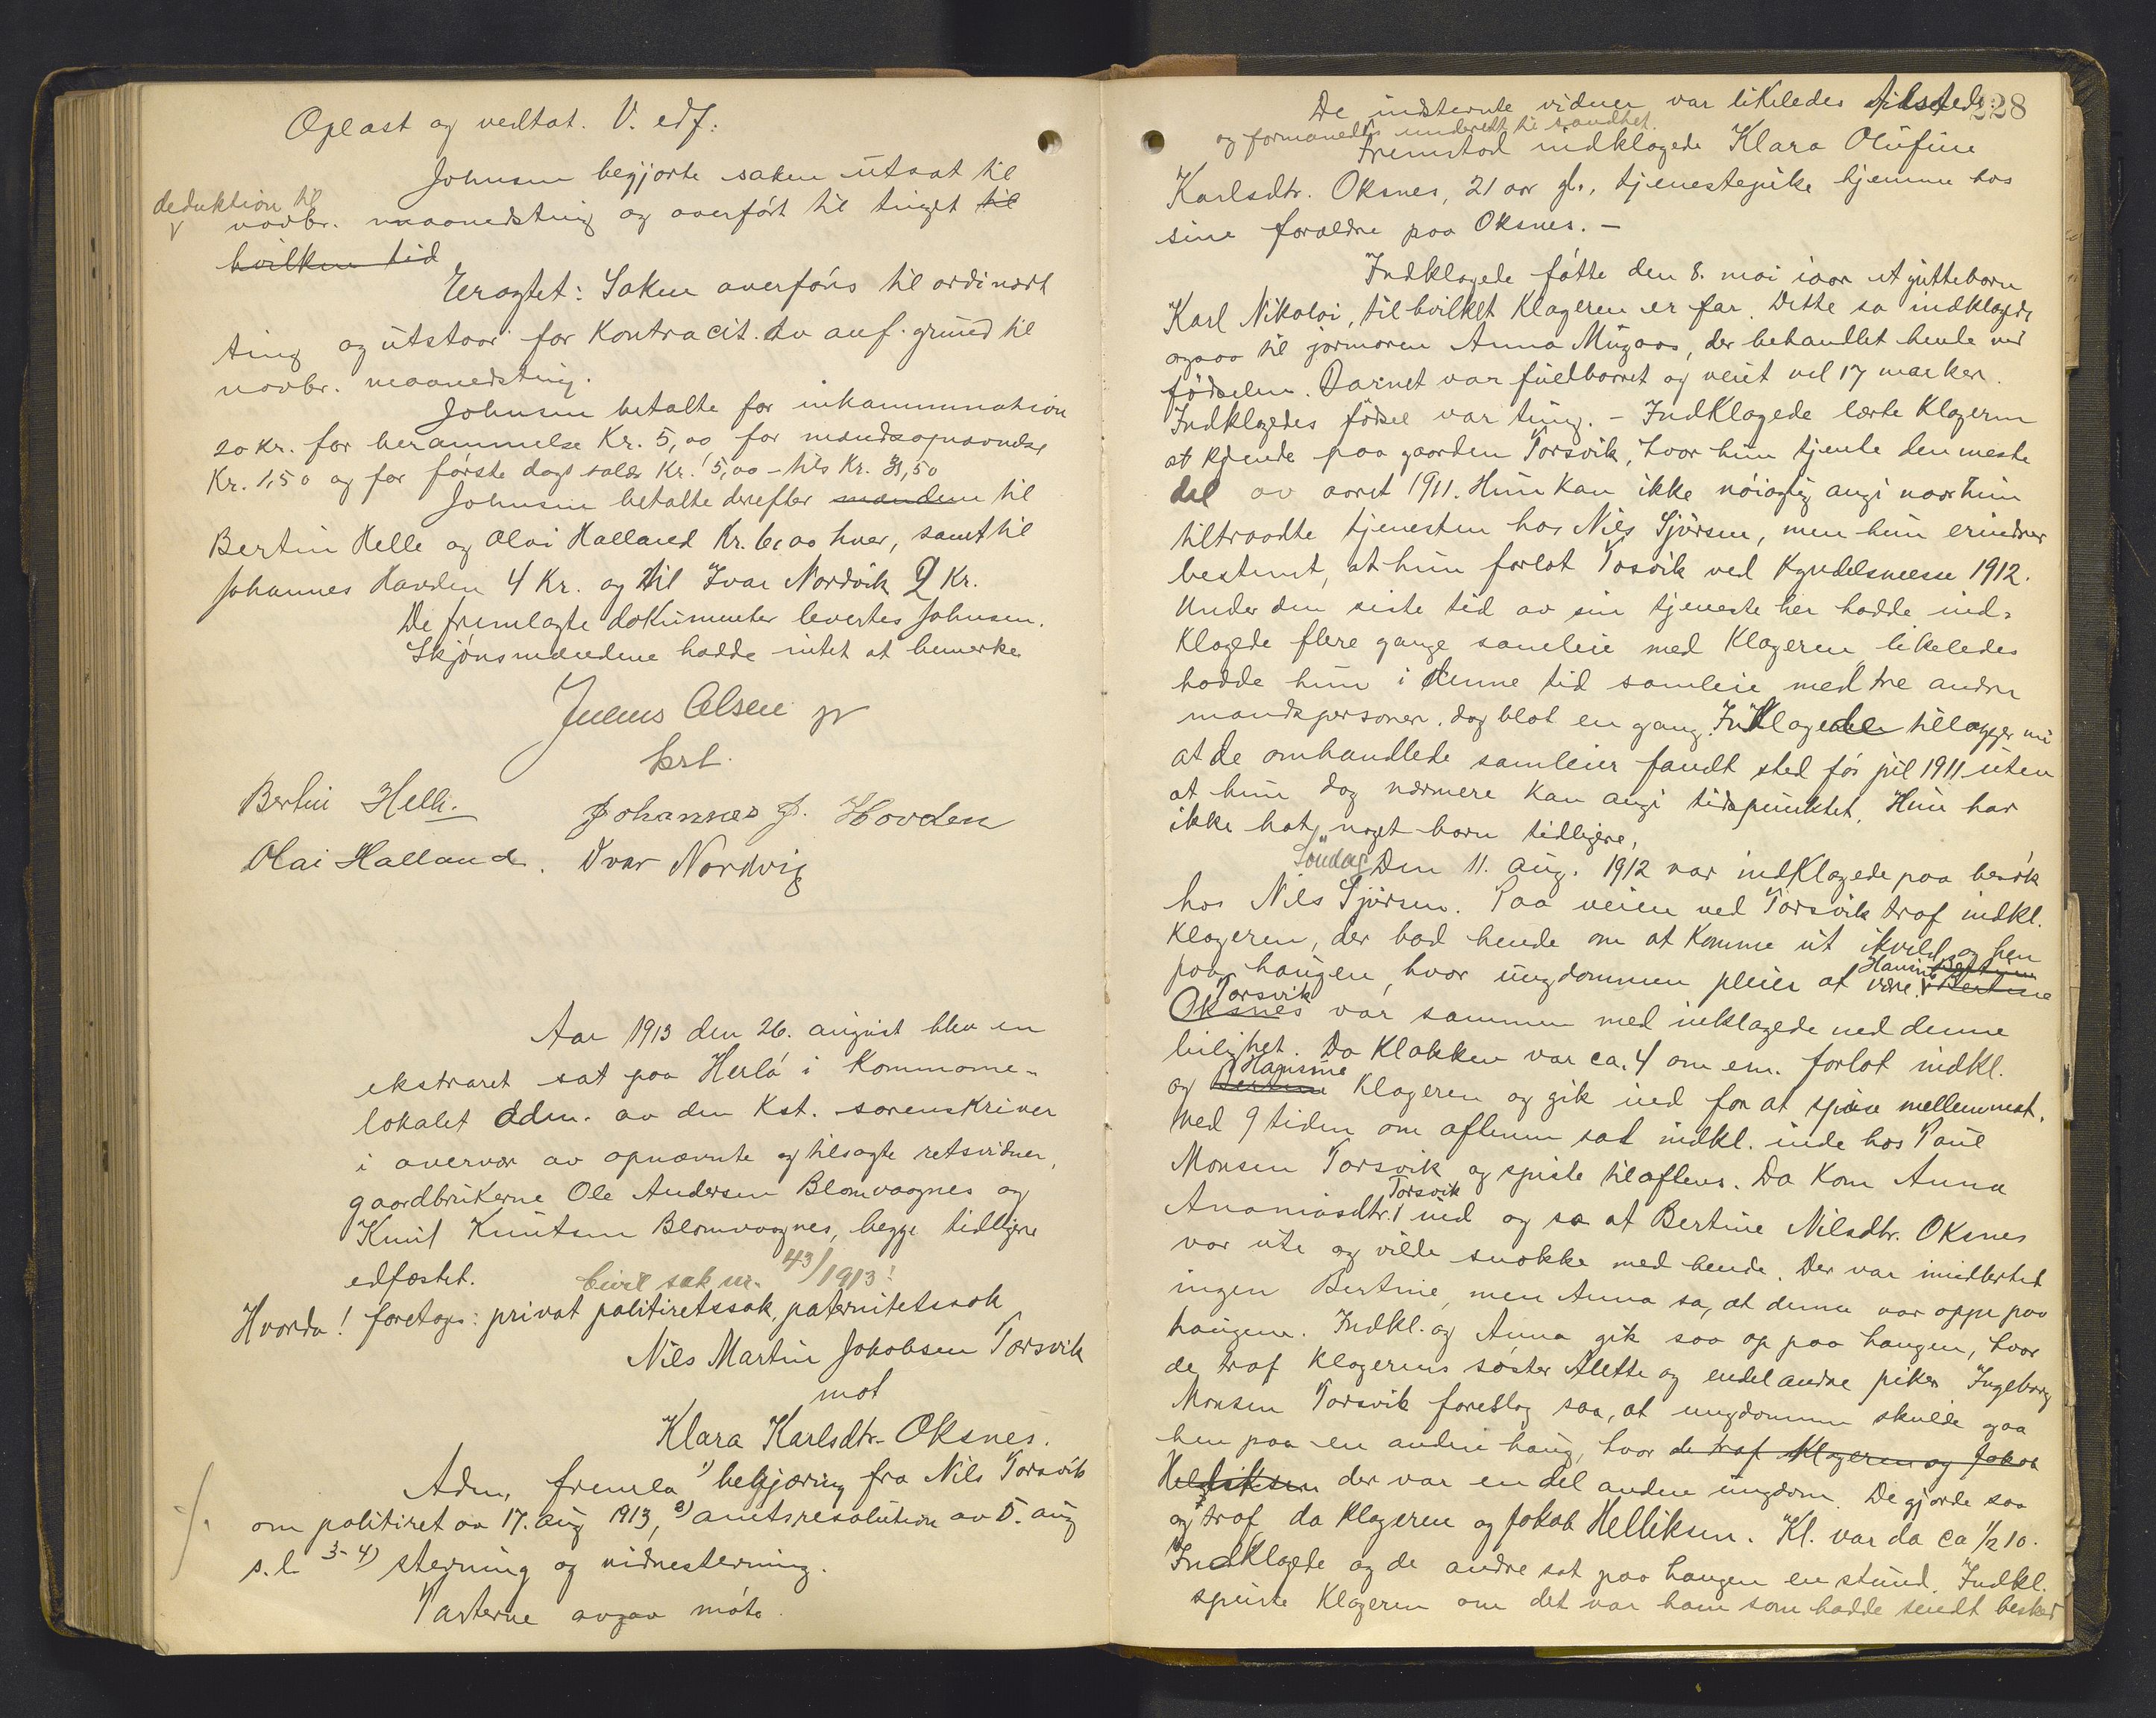 Oplæst og vedtat. V. edf:
Johnsen begjærte saken utsat til
deduktion til
novbr. maanedsting og overført til tinget til
hvilken tid
Eragtet: Saken overføres til ordinært
ting og utstaar for Kontracit. av anf. grund til
novbr. maanedsting.
Johnsen betalte for inkammination
20 kr. for berammelse Kr. 5,00 for mandsopnævnelse
Kr. 1,50 og for første dags salær Kr. 5,00 - tils Kr. 31,50
Johnsen betalte derefter mændene til
Bertin Helle og Olai Halland Kr. 6,00 hver, samt til
Johannes Hovden 4 Kr. og til Ivar Nordvik 2 Kr.
De fremlagte dokumenter levertes Johnsen.
Skjønsmændene hadde intet at bemerke
Julius Olsen jr
kst.
Bertin Helle. Johannes J. Hovden
Olai Halland. Ivar Nordvig
Aar 1913 den 26. august blev en
ekstraret sat paa Herlø i Kommune-
lokalet adm. av den Kst. sorenskriver
i overvær av opnævnte og tilsagte retsvidner,
gaardbrukerne Ole Andersen Blomvaagnes og
Knut Knutsen Blomvaagnes, begge tidligere
edfæstet.
Civil sak nr. 43/1913!
Hvorda! foretoges: privat politiretssak, paternitetssak
Nils Martin Jakobsen Torsvik
mot
Klara Karlsdtr. Oksnes.
Adm. fremla 1) begjæring fra Nils Torsvik
om politiret av 17. aug 1913, 2) amtsresolution av 5. aug
s. l. 3-4) stevning og vidnestevning.
Parterne avgav møte.
228
De indstevnte vidner var likeledes tilstede
og formanedes underett til sandhet.
Fremstod indklagede Klara Olufine
Karlsdtr. Oksnes, 21 aar gl., tjenestepike hjemme hos
sine forældre paa Oksnes. -
Indklagede føtte den 8. mai iaar et gutteborn
Karl Nikolai, til hvilket Klageren er far. Dette sa indklagede
ogsaa til jormoren Anna Mugaas, der behandlet hende ved
fødselen. Barnet var fuldbaaret og veiet vel 17 marker.
Indklagedes fødsel var tung. - Indklagede lærte Klageren
at kjende paa gaarden Torsvik, hvor hun tjente den meste
del av aaret 1911. Hun kan ikke nøiagtig angi naar hun
tiltraadte tjenesten hos Nils Sjursen, men hun erindrer
bestemt, at hun forlot Tosvik ved Kyndelsmesse 1912.
Under den siste tid av sin tjeneste her hadde ind-
klagede flere gange samleie med Klageren, likeledes
hadde hun i denne tid samleie med tre andre
mandspersoner, dog blot en gang. Indklagede tillægger nu
at de omhandlede samleier fandt sted før jul 1911 uten
at hun dog nærmere kan angi tidspunktet. Hun har
ikke hat noget barn tidligere,
Søndag Den 11. aug. 1912 var indklagede paa besøk
hos Nils Sjursen. Paa veien ved Torsvik traf indkl.
klageren, der bad hende om at komme ut ikveld og hen
paa haugen, hvor ungdommen pleier at være. Hansine Bertine
Torsvik
Oksnes var sammen med inklagede ved denne
leilighet. Da Klokken var ca. 4 om em. forlot indkl.
Hansine
og Bertine Klageren og gik ind for at spise mellemmat.
Ved 9 tiden om aftenen sat indkl. inde hos Paul
Monsen Torsvik og spiste tilaftens. Da kom Anna
Torsvik
Ananiasdtr. ind og sa at Bertine Nilsdtr. Oksnes
var ute og vilde snakke med hende. Der var imidlertid
ingen Bertine, men Anna sa, at denne var oppe paa
haugene. Indkl. og Anna gik saa op paa haugen, hvor
de traf klagerens søster Alette og endel andre piker Ingeborg
Monsen Torsvik foreslog saa, at ungdommen skulde gaa
hen paa en anden haug, hvor de traf klageren og Jakob
Helliksen der var en del anden ungdom. De gjorde saa
og traf da klageren og Jakob Helliksen. Kl. var da ca 1/2 10.
Indklagede og de andre sat paa haugen en stund. Indkl.
spurte klageren om det var ham som hadde sendt besked